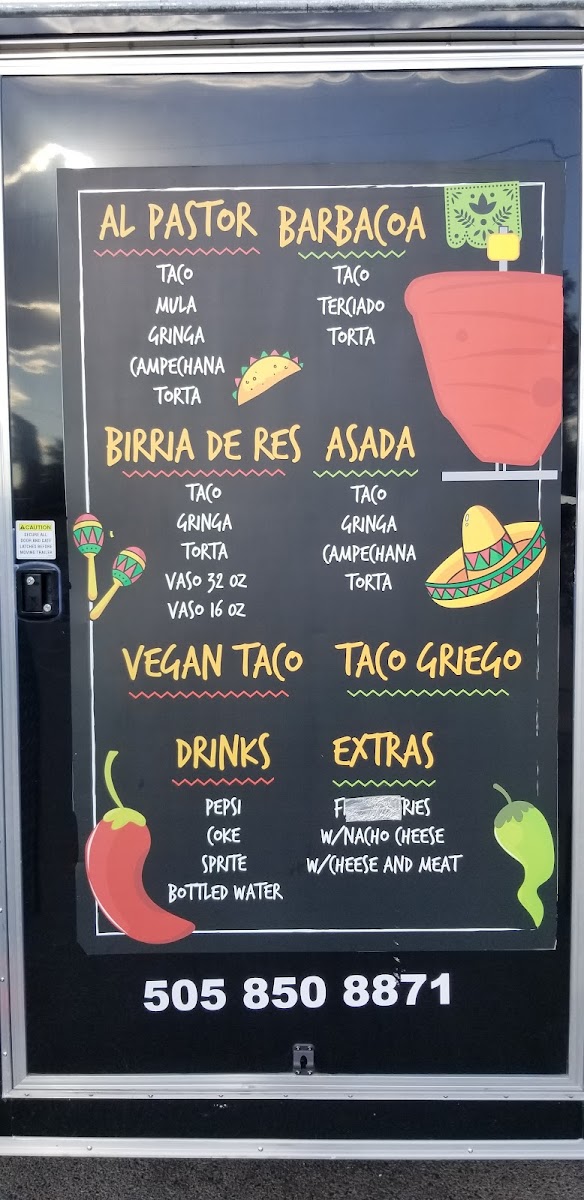 AL PASTOR
TACO
MULA
GRINGA
CAMPECHANA
TORTA
BARBACOA
TACO
TERCIADO
TORTA
BIRRIA DE RES
TACO
GRINGA
TORTA
VASO 32 OZ
VASO 16 OZ
ASADA
TACO
GRINGA
CAMPECHANA
TORTA
VEGAN TACO
TACO GRIEGO
DRINKS
PEPSI
COKE
SPRITE
BOTTLED WATER
EXTRAS
RIES
W/NACHO CHEESE
W/CHEESE AND MEAT
505 850 8871
CAUTION
SECURE ALL